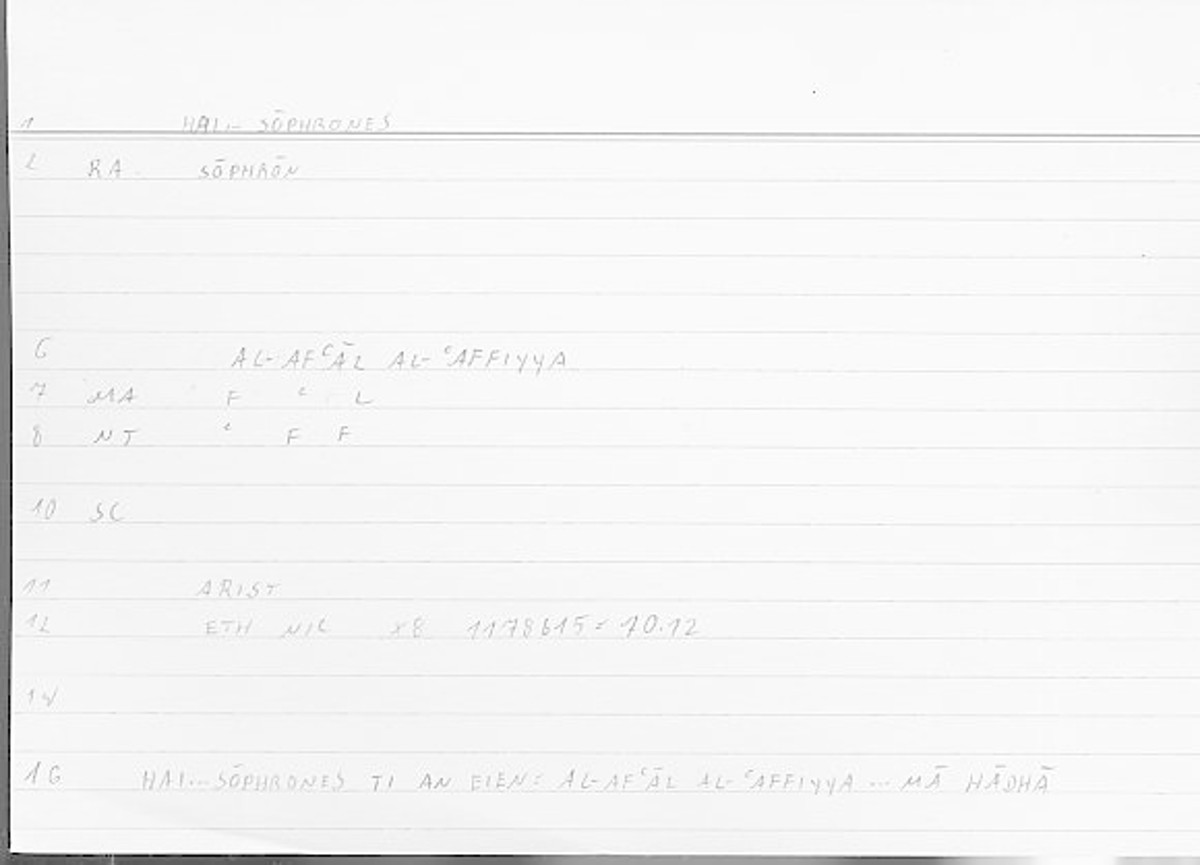 1 HAI... SŌPHRONES
2 RA SŌPHRŌN
6 AL-AFᶜĀL AL-ᶜAFFIYYA
7 MA F ᶜ L
8 NT ᶜ F F
10 SC
11 ARIST
12 ETH NIC X8 1178b15 = 70.12
14
16 HAI...SŌPHRONES TI AN EIEN: AL-AFᶜĀL AL-ᶜAFFIYYA ... MĀ HĀDHĀ